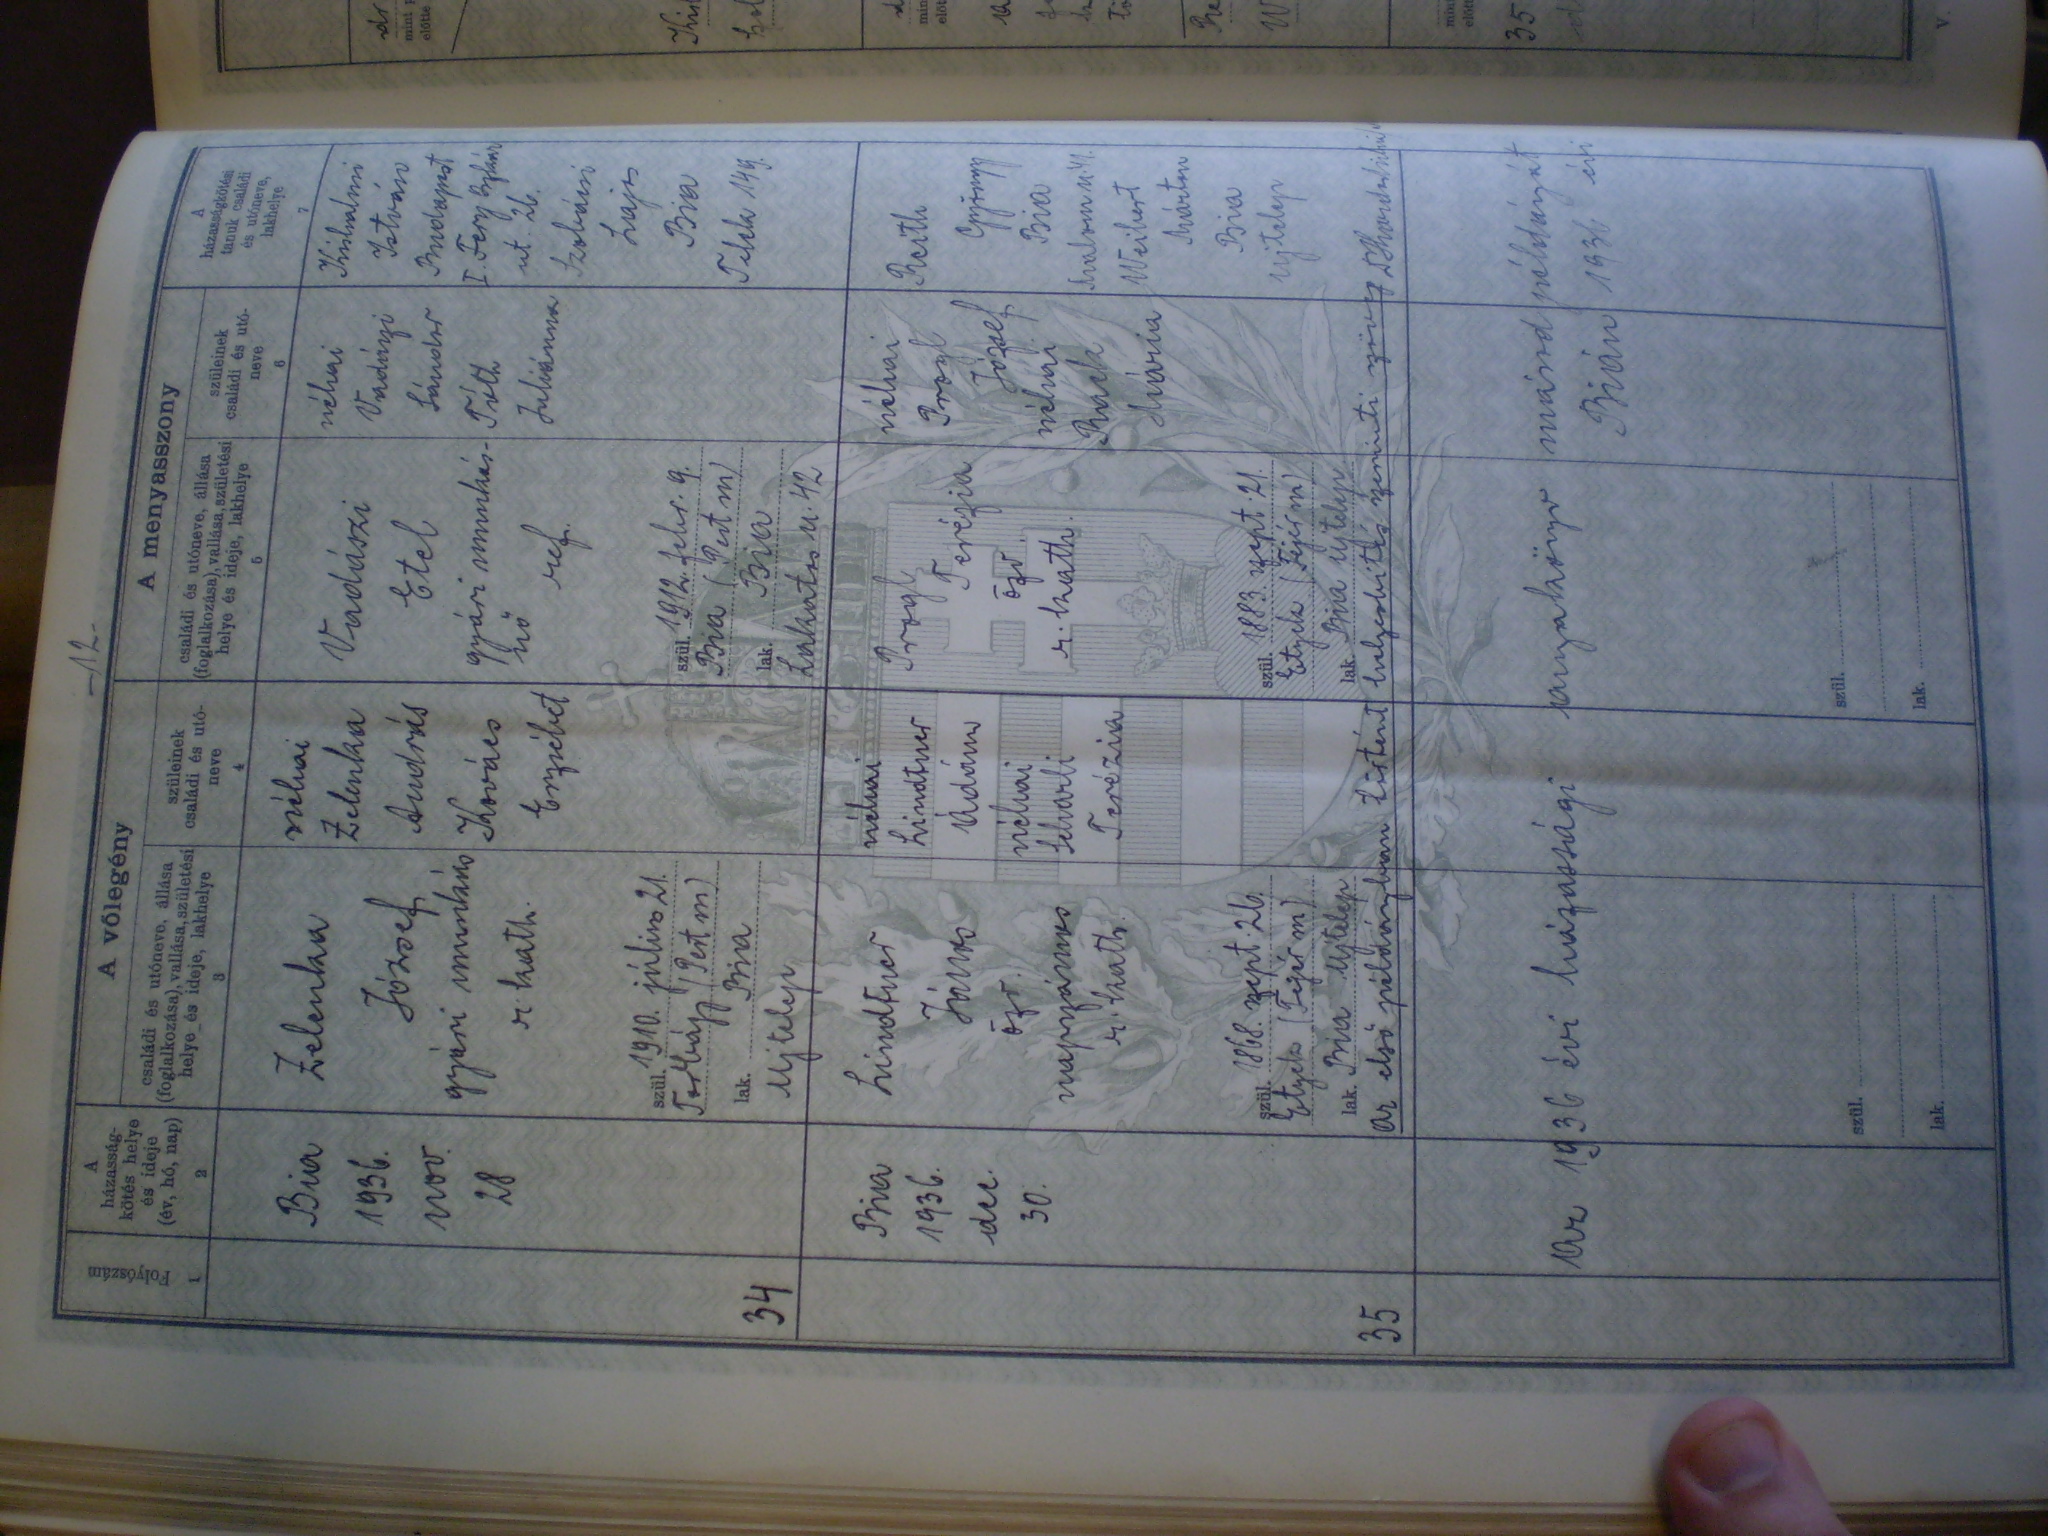 -12.
A vőlegény
A menyasszony
Folyószám
A
házasság-
kötés helye
és ideje
(év, hó, nap)
családi és utóneve, állása
(foglalkozása), vallása, születési
helye és ideje, lakhelye
szüleinek
családi és utó-
neve
családi és utóneve, állása
(foglalkozása), vallása, születési
helye és ideje, lakhelye
szüleinek
családi és utó-
neve
A
házasságkötési
tanuk családi
és utóneve,
lakhelye
1
2
3
4
5
6
7
34
Bia
1936.
nov.
28
Zelenka
József
gyári munkás
r. kath.
szül. 1910. július 21.
Torbágy (Pest m)
lak. Bia
Ujtelep
néhai
Zelenka
András
Kovács
Erzsébet
Vadászi
Etel
gyári munkás-
nő
ref.
szül. 1912. febr. 9.
Bia (Pest m)
lak. Bia
Lakatos u. 42
néhai
Vadászi
Sándor
Tóth
Juliánna
István
Budapest
út. 26.
Lajos
Bia
Telek 149.
35
Bia
1936.
dec.
30.
Lindtner
János
özv.
napszámos
r. kath.
szül. 1868. szept. 26.
Etyek (Fejér m)
lak. Bia Ujtelep
néhai
Lindtner
Ádám
néhai
Terézia
Progl
Terézia
özv.
r. kath.
szül. 1883. szept. 21.
Etyek (Fejér m)
lak. Bia Ujtelep
néhai
Progl
József
néhai
Mária
Reith
György
Bia
Malom u. 41.
Weibert
Márton
Bia
Ujtelep
Az első példányban történt helyesbítés szerinti szöveg
Az 1936 évi házassági anyakönyv másod példányát
Bián 1936 évi
szül.
lak.
szül.
lak.
35
V.